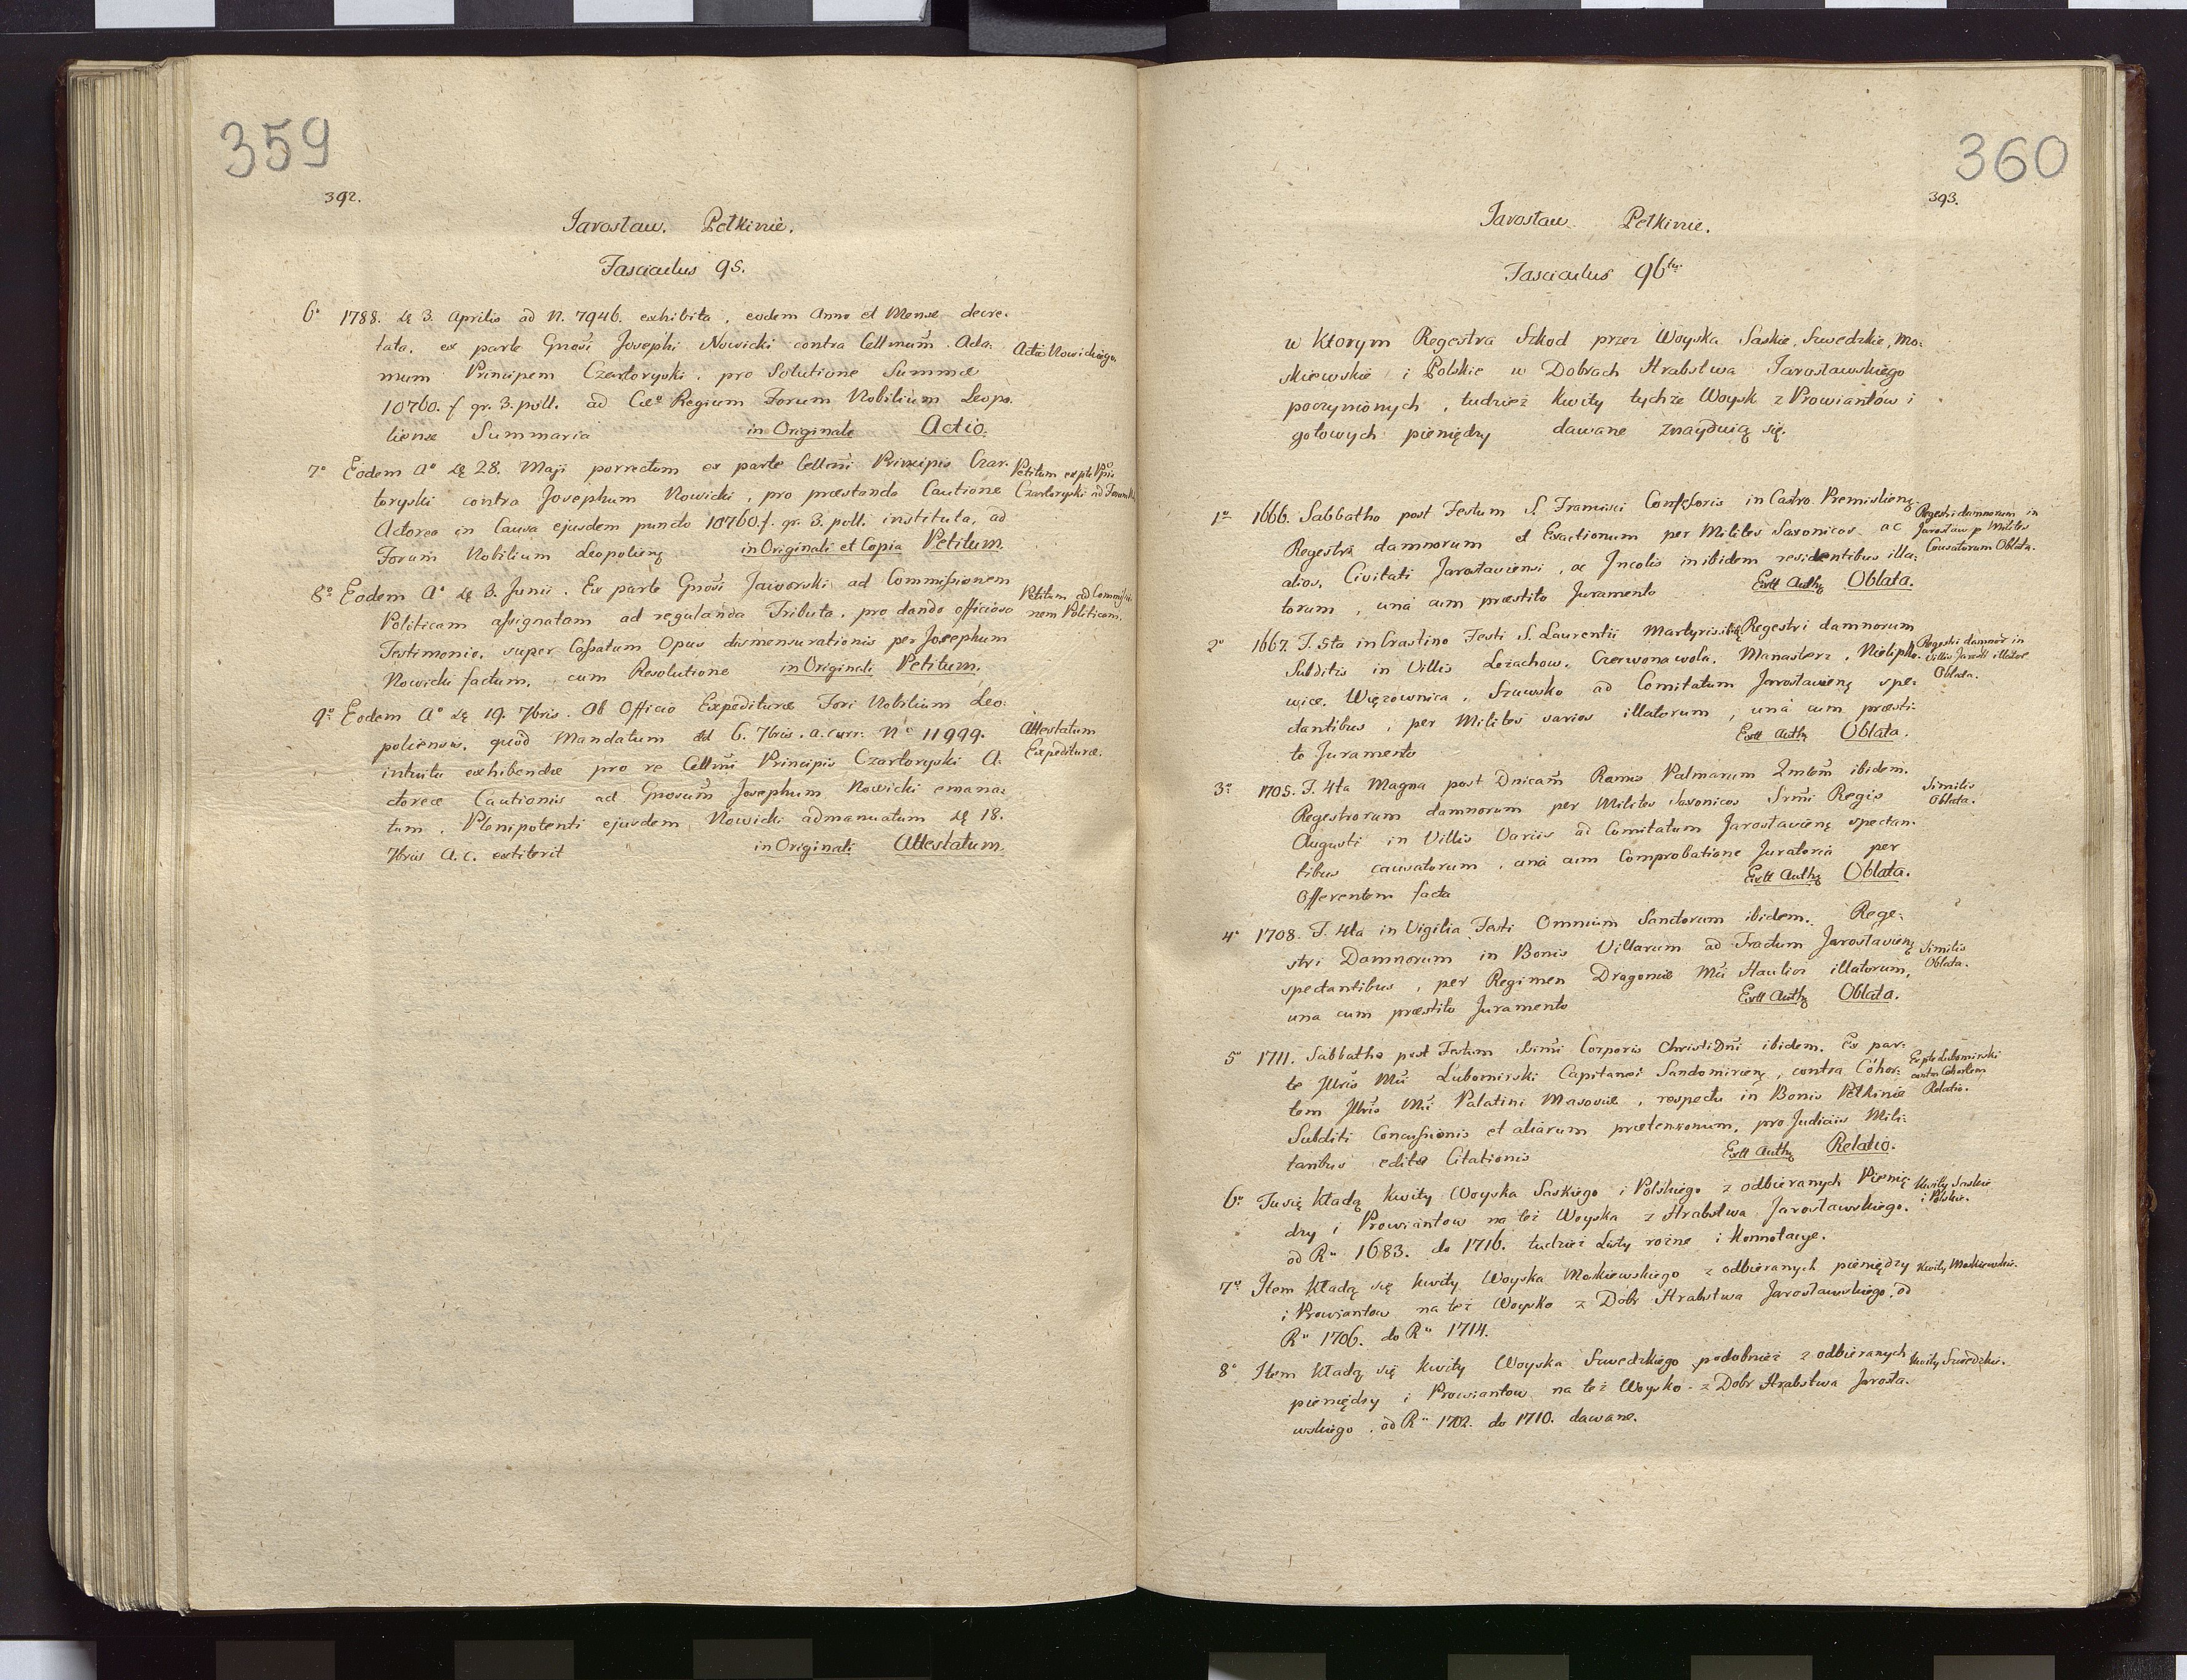 359
392.
Jarosław. Pełkinie.
Fasciculus 95.
6° 1788. dę 3. Aprilis ad N. 7946. exhibita, eodem Anno et Mense decre-
tata, ex parte Gnosi Josephi Nowicki contra Cellmum Ada-
Actio Nowickiego.
mum Principem Czartoryski, pro Solutione Summæ
10760. f gr. 3. poll. ad Cæo Regium Forum Nobilium Leopo-
liense Summaria in Originale Actio.
7° Eodem A° dę 28. Maji porrectum ex parte Cellmi Principis Czar-
Petitum ex pte Ppis
toryski contra Josephum Nowicki, pro præstanda Cautione
Czartoryski ad Forum
Actorea in Causa ejusdem puncto 10760. f. gr. 3. poll. instituta, ad
Forum Nobilium Leopolienę in Originali et Copia Petitum.
8° Eodem A° dę 3. Junii. Ex parte Gnosi Jaworski ad Commissionem
Petitum ad Commissio-
Politicam assignatam ad regulanda Tributa, pro dando officioso
nem Politicam.
Testimonio, super Cassatum Opus dismensurationis per Josephum
Nowicki factum, cum Resolutione in Originali Petitum.
9° Eodem A° dę 19. 7bris. Ab Officio Expedituræ Fori Nobilium Leo-
poliensis, quod Mandatum dd 6. 7bris. a. curr. N° 11999.
Attestatum
intuitu exhibendæ pro re Cellmi Principis Czartoryski A-
Expedituræ.
ctoreæ Cautionis ad Gnosum Josephum Nowicki emana-
tum, Plenipotenti ejusdem Nowicki admanuatum dę 18.
7bris A. c. extiterit in Originali Attestatum.
360
393.
Jarosław Pełkinie.
Fasciculus 96tus
w Ktorym Regestra Szkod przez Woyska Saskie, Szwedzkie, Mo-
skiewskie i Polskie w Dobrach Hrabstwa Jarosławskiego
poczynionych, tudzież Kwity tychże Woysk z Prowiantów i
gotowych pieniędzy dawane znayduią się.
1° 1666. Sabbatho post Festum S. Francisci Confessoris in Castro Premislienę
Regestri damnorum in
Regestri damnorum et Exactionum per Milites Saxonicos ac
Jarosław p Milites
alios, Civitati Jaroslaviensi, ac Incolis inibidem residentibus illa-
Causatorum Oblata.
torum, una cum præstito Juramento Extt Authę Oblata.
2° 1667. F. 5ta in Crastino Festi S. Laurentii Martyris ibidę Regestri damnorum
Subditis in Villis Łazachow, Czerwonawola, Manasterz, Nielipko-
Regestri damnor in
Villis Jarosł illator
wice, Więzownica, Szuwsko ad Comitatum Jaroslavienę spe-
Oblata.
ctantibus, per Milites varios illatorum, una cum præsti-
to Juramento Extt Authę Oblata.
3° 1705. F. 4ta Magna post Dnicam Ramis Palmarum ibidem.
Similis
Regestrorum damnorum per Milites Saxonicos Srmi Regis
Oblata.
Augusti in Villis Variis ad Comitatum Jaroslavienę spectan-
tibus causatorum, una cum Comprobatione Juratoria per
Offerentem facta Extt Authę Oblata.
4° 1708. F. 4ta in Vigilia Festi Omnium Sanctorum ibidem. Rege-
stri Damnorum in Bonis Villarum ad Tractum Jaroslavienę
Similis
spectantibus, per Regimen Dragoniæ Mci Haulior illatorum,
Oblata.
una cum præstito Juramento Extt Authę Oblata.
5° 1711. Sabbatho post Festum Ssimi Corporis Christi Dni ibidem. Ex par-
Ex pte Lubomirski
te Jllris Mci Lubomirski Capitanei Sandomirienę, contra Cohor-
contra Cohortem
tem Jllris Mci Palatini Masoviæ, respectu in Bonis Pełkinie
Relatio.
Subditi Concussionis et aliarum prætensionum, pro Judiciis Mili-
taribus editæ Citationis Extt Authę Relatio.
6° Tu się kładą kwity Woyska Saskiego i Polskiego z odbieranych Pienię-
Kwity Saskie
i Polskie.
dzy i Prowiantow na też Woyska z Hrabstwa Jarosławskiego.
od Ru 1683. do 1716. tudzież Listy rożne i Konnotacye.
7° Item kładą się kwity Woyska Moskiewskiego z odbieranych pieniędzy
Kwity Moskiewskie.
i Prowiantow na też Woysko z Dobr Hrabstwa Jarosławskiego, od
Ru 1706. do Ru 1714.
8° Item kładą się kwity Woyska Szwedzkiego podobnież z odbieranych
Kwity Szwedzkie.
pieniędzy i Prowiantow na też Woysko z Dobr Hrabstwa Jarosła-
wskiego, od Ru 1702. do 1710. dawane.